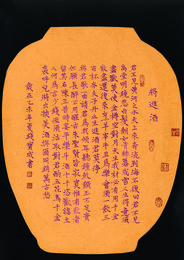 將進酒
君不見黃河之水天上來奔流到海不復回君不見
高堂明鏡悲白髮朝如青絲暮成雪人生得意須
盡歡莫使金樽空對月天生我材必有用千金
散盡還復來烹羊宰牛且為樂會須一飲三
百杯岑夫子丹丘生將進酒君莫停
與君歌一曲請君為我側耳聽鐘鼓饌玉不足貴
但願長醉不願醒古來聖賢皆寂寞惟有飲者
留其名陳王昔時宴平樂斗酒十千恣歡謔主
人何為言少錢徑須沽取對君酌五花馬千金
裘呼兒將出換美酒與爾同銷萬古愁
年夏錢寶成書